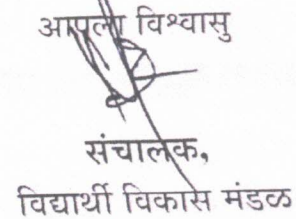 आपला विश्वासु
संचालक,
विद्यार्थी विकास मंडळ